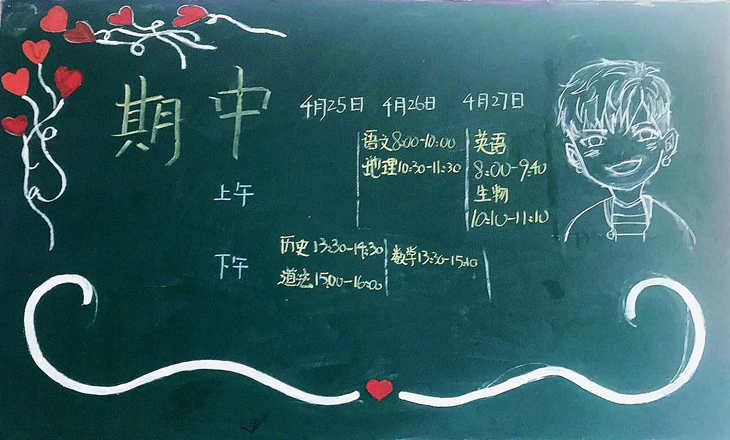 期中
4月25日 4月26日 4月27日
上午
语文8:00-10:00
地理10:30-11:30
英语
8:00-9:40
生物
10:10-11:10
下午
历史13:30-14:30
道法15:00-16:00
数学13:30-15:10